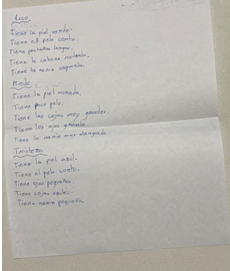 Asco
Tiene la piel verde.
Tiene el pelo corto.
Tiene pestañas largas.
Tiene la cabeza redonda.
Tiene la nariz
Miedo
Tiene la piel morada.
Tiene poco pelo.
Tiene las cejas muy grandes.
Tiene los ojos grandes.
Tiene la nariz muy alargada.
Tristeza
Tiene la piel azul.
Tiene el pelo corto.
Tiene ojos pequeños.
Tiene cejas
Tiene nariz pequeña.